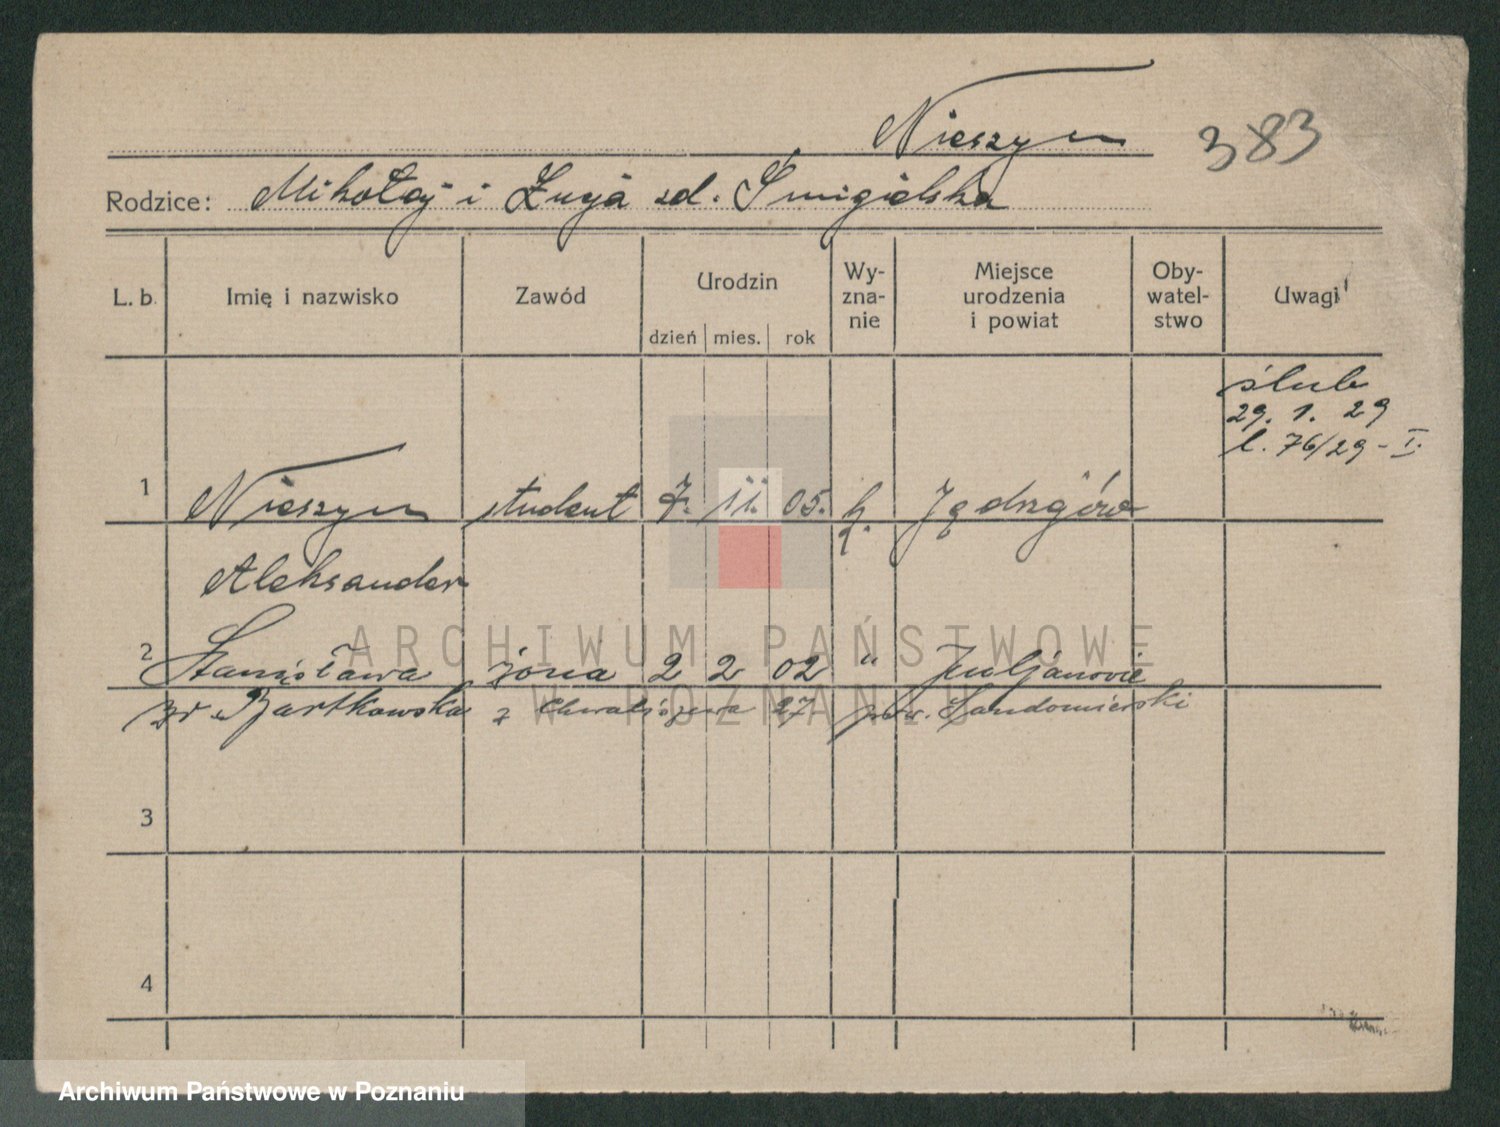 Nieszyn 383
Rodzice: Mikołaj i Łucja zd. Śmigielska
L. b. Imię i nazwisko Zawód Urodzin Wy-zna-nie Miejsce urodzenia i powiat Oby-watel-stwo Uwagi
dzień mies. rok
ślub
29. 1. 29
l. 76/29 - I.
1 Nieszyn student 7. 11. 05. k. Jędrzejów
Aleksander
2 Stanisława żona 2 2 02 " Juljanowie
zd. Bartkowska z Chwaliszewa 27 pow. Sandomierski
3
4
ARCHIWUM PAŃSTWOWE
W POZNANIU
Archiwum Państwowe w Poznaniu